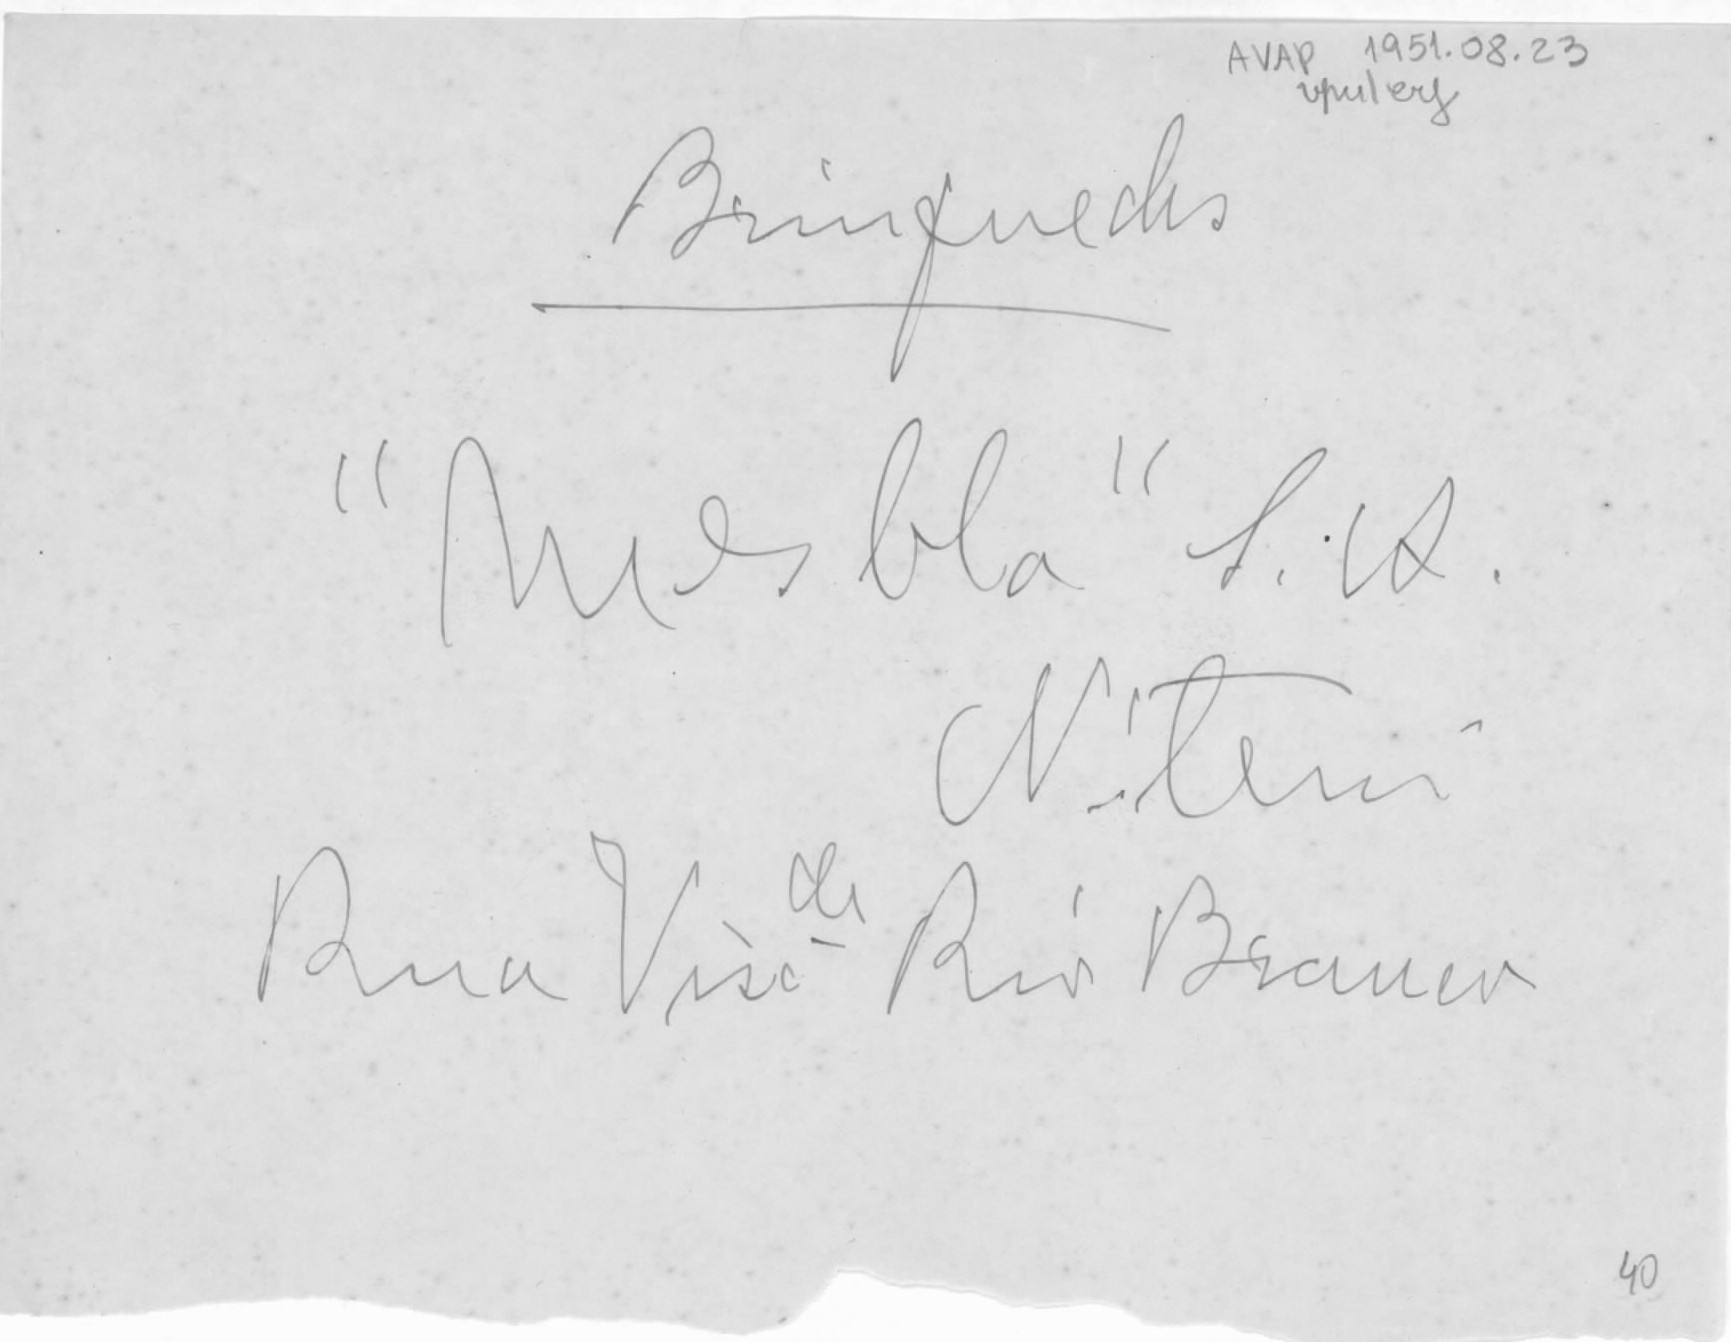 AVAP 1951.08.23
Brinquedos
"Mesbla" S.A.
Niteroi
Rua Visc de Rio Branco
40